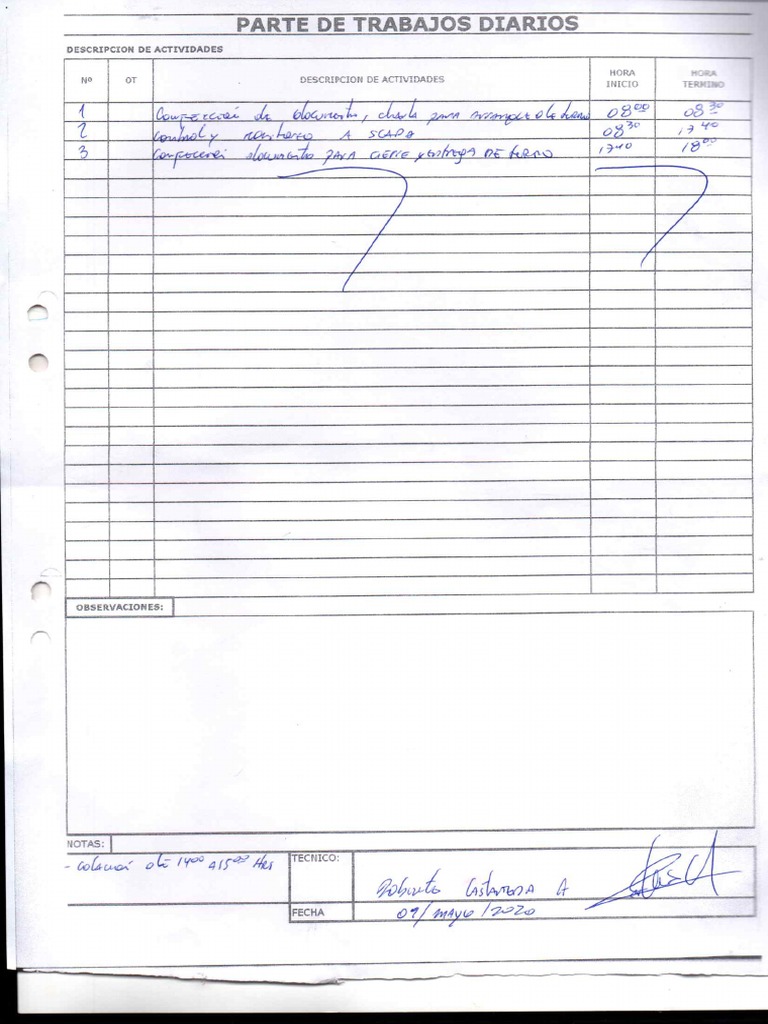 PARTE DE TRABAJOS DIARIOS
DESCRIPCION DE ACTIVIDADES
Nº OT DESCRIPCION DE ACTIVIDADES HORA INICIO HORA TERMINO
1 de documento, charla para arranque de turno 08:00 08:30
2 control y monitoreo A SCADA 08:30 17:40
3 documento para cierre y entrega DE turno 17:40 18:00
OBSERVACIONES:
NOTAS:
- Colación de 14:00 A 15:00 Hrs
TECNICO:
Roberto Castaneda A
FECHA 09/mayo/2020